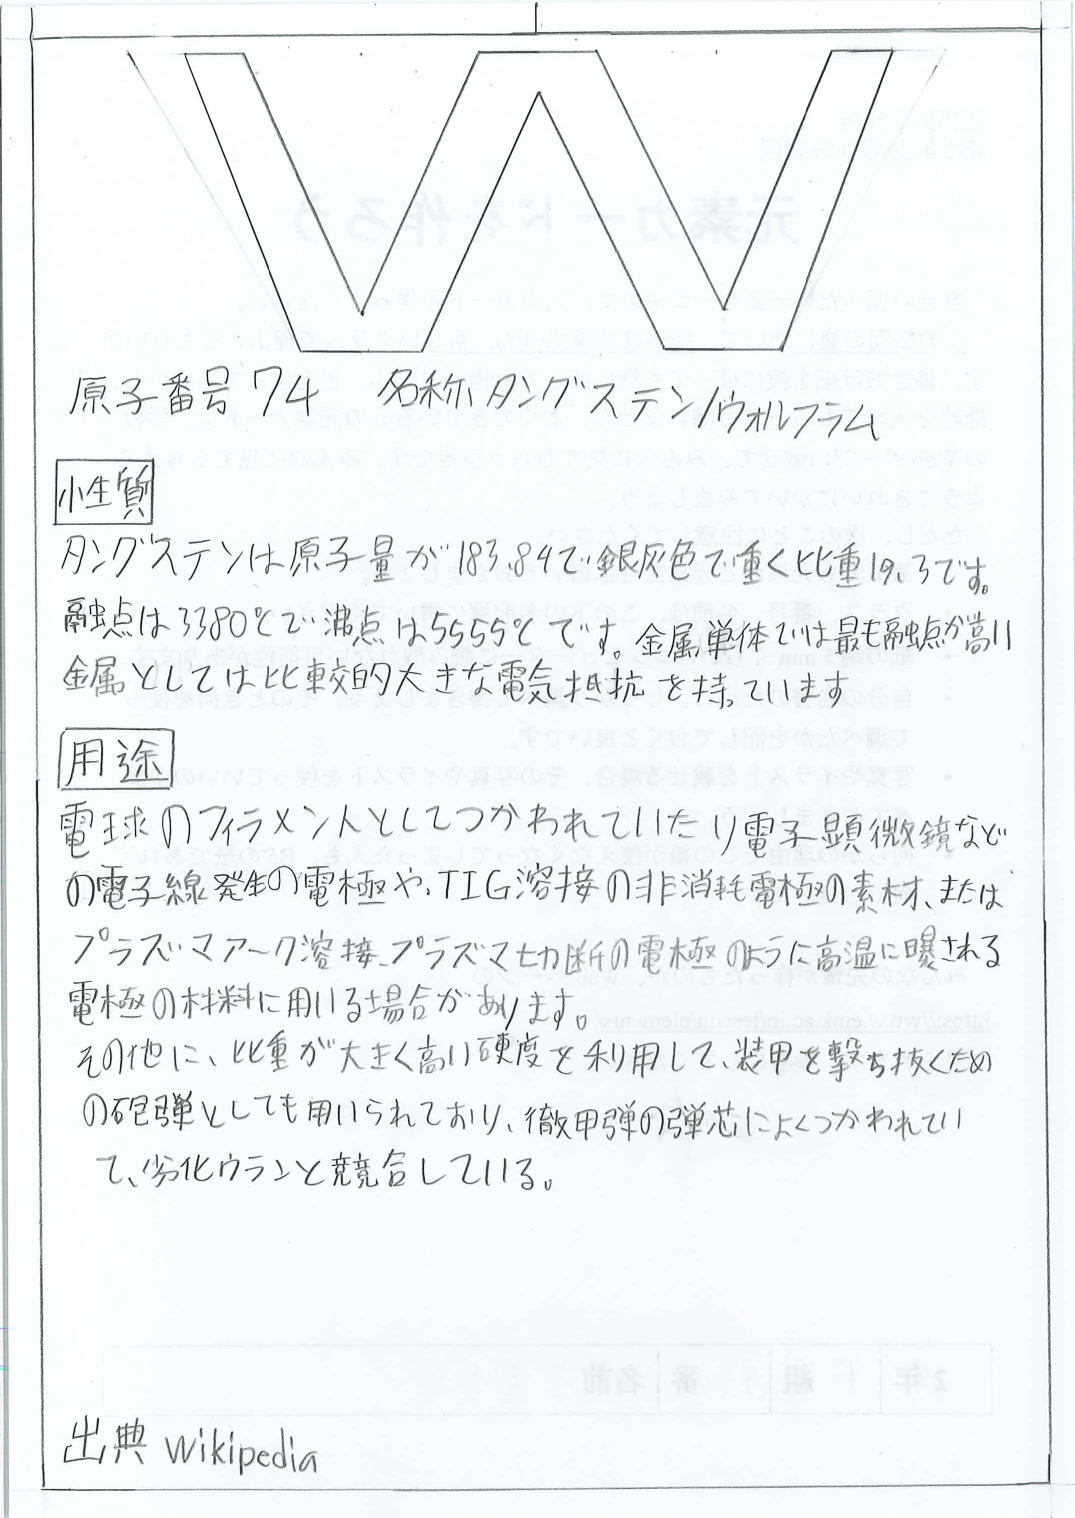 W
原子番号74 名称、タングステン/ウォルフラム
性質
タングステンは原子量が183.84で銀灰色で重く比重19.3です。
融点は3380℃で沸点は5555℃です。金属単体では最も融点が高い
金属としては比較的大きな電気抵抗を持っています
用途
電球のフィラメントとしてつかわれていたり電子顕微鏡など
の電子線発生の電極や、TIG溶接の非消耗電極の素材、または
プラズマアーク溶接、プラズマ切断の電極のように高温に曝される
電極の材料に用いる場合があります。
その他に、比重が大きく高い硬度を利用して、装甲を撃ち抜くため
の砲弾としても用いられており、徹甲弾の弾芯によくつかわれてい
て、劣化ウランと競合している。
出典 Wikipedia